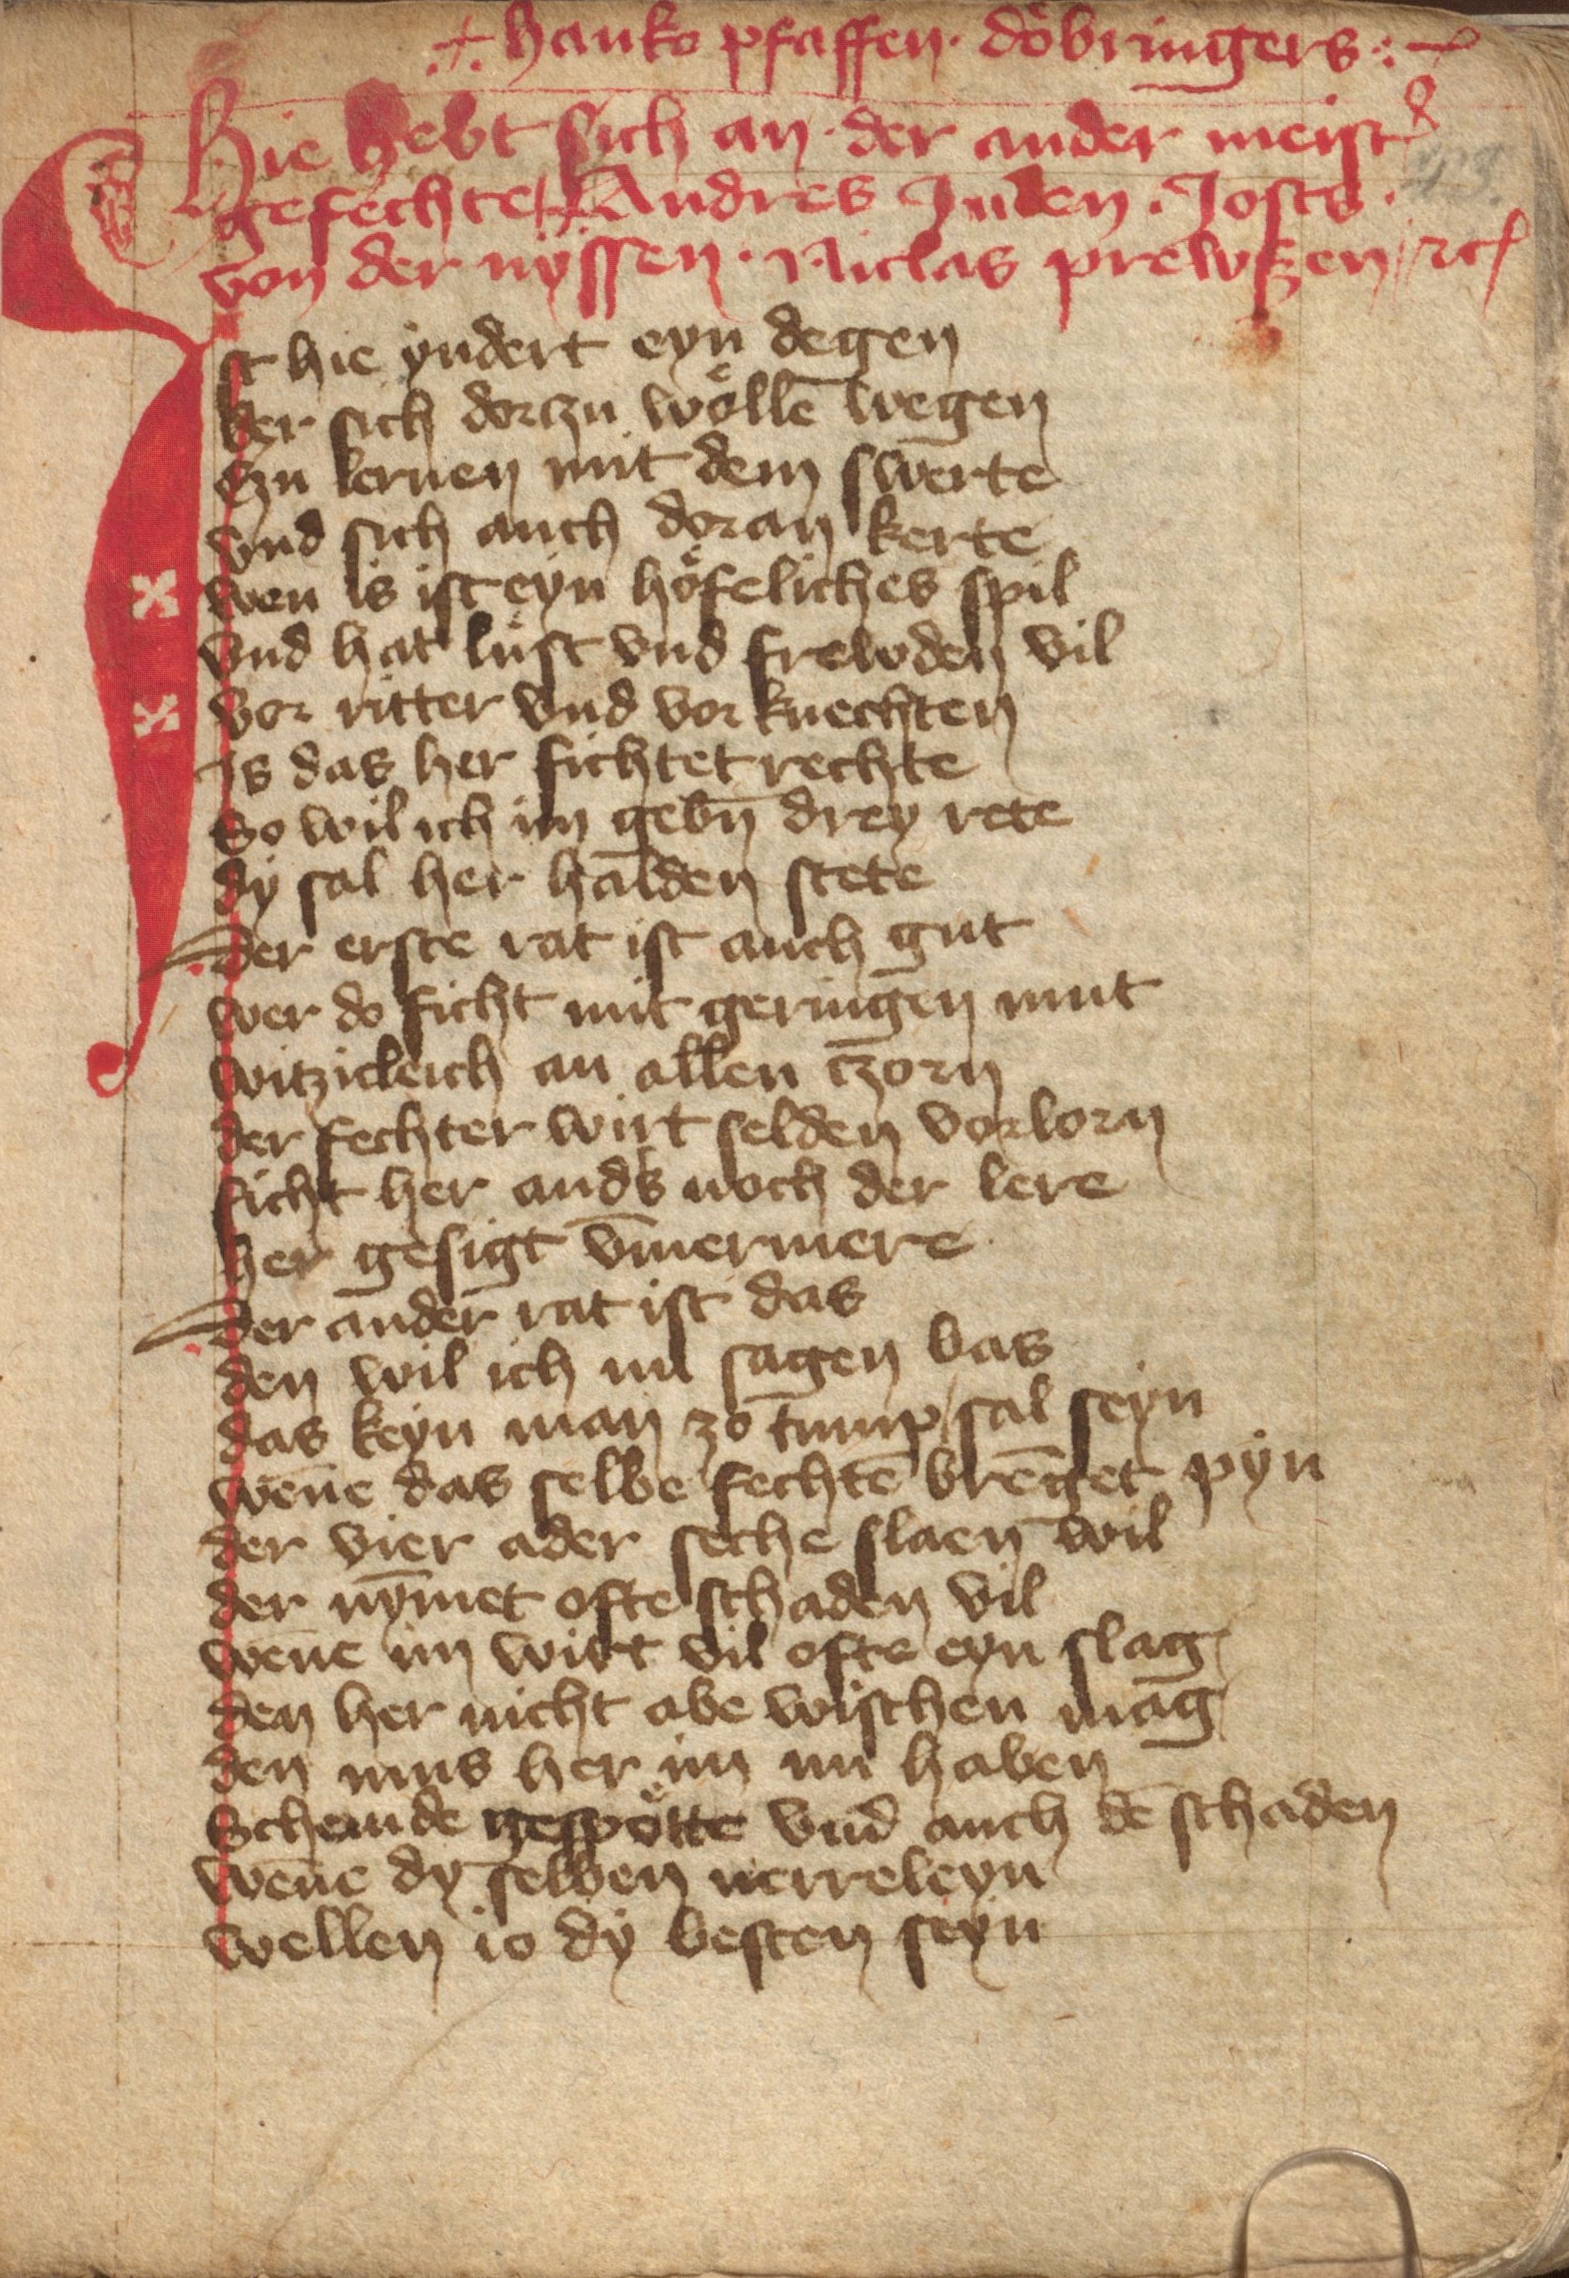 .+. hanko pfaffen · döbringers :~
Hie hebt sich an · der ander meister
gefechte + Andres Juden . Josts ·
von der nyssen · Niclas prewszen /rc/
Ist hie yndert eyn degen
der sich dorczu wöllē wegen
Czu lernen mit dem swerte
vnd sich auch doran kerte
wen is ist eyn höfeliches spil
vnd hat lůst vnd frewden vil
vor ritter vnd vor knechten
Is das her fichtet rechte
So wil ich im gebn̄ drey rete
dy sal her halden stete
Der erste rat ist auch gut
wer do ficht mit geringen mut
witzicleich an allen czorn
der fechter wirt selden vorlorn
ficht her anders noch der lere
her gesigt vm̄ermere
Der ander rat ist das
den wil ich im sagen bas
das keyn man zo tump sal seyn
wen̄e das selbe fechtē brēget pyn
der vier ader seche slaen wil
der nym̄et ofte schaden vil
wen̄e im wirt vil ofte eyn slag
den her nicht abe wischen mag
den mus her im nu haben
Schemde gespötte vnd auch dē schaden
wen̄e dy selben nerreleyn
wellen io dy besten seyn